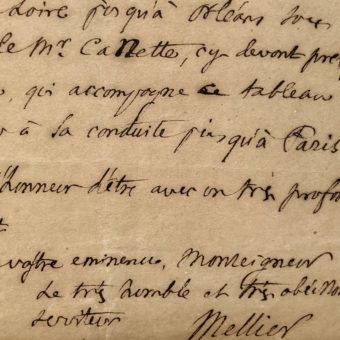 Loire jusqu'à orléans sous
le Mr. Canette, cy devont pre
qui accompagne ce tableau
à sa conduite jusqu'à Paris
d'honneur d'être avec un trés profo
votre eminence, Monseigneur
Le trés humble et trés obéiss
serviteur Mellier